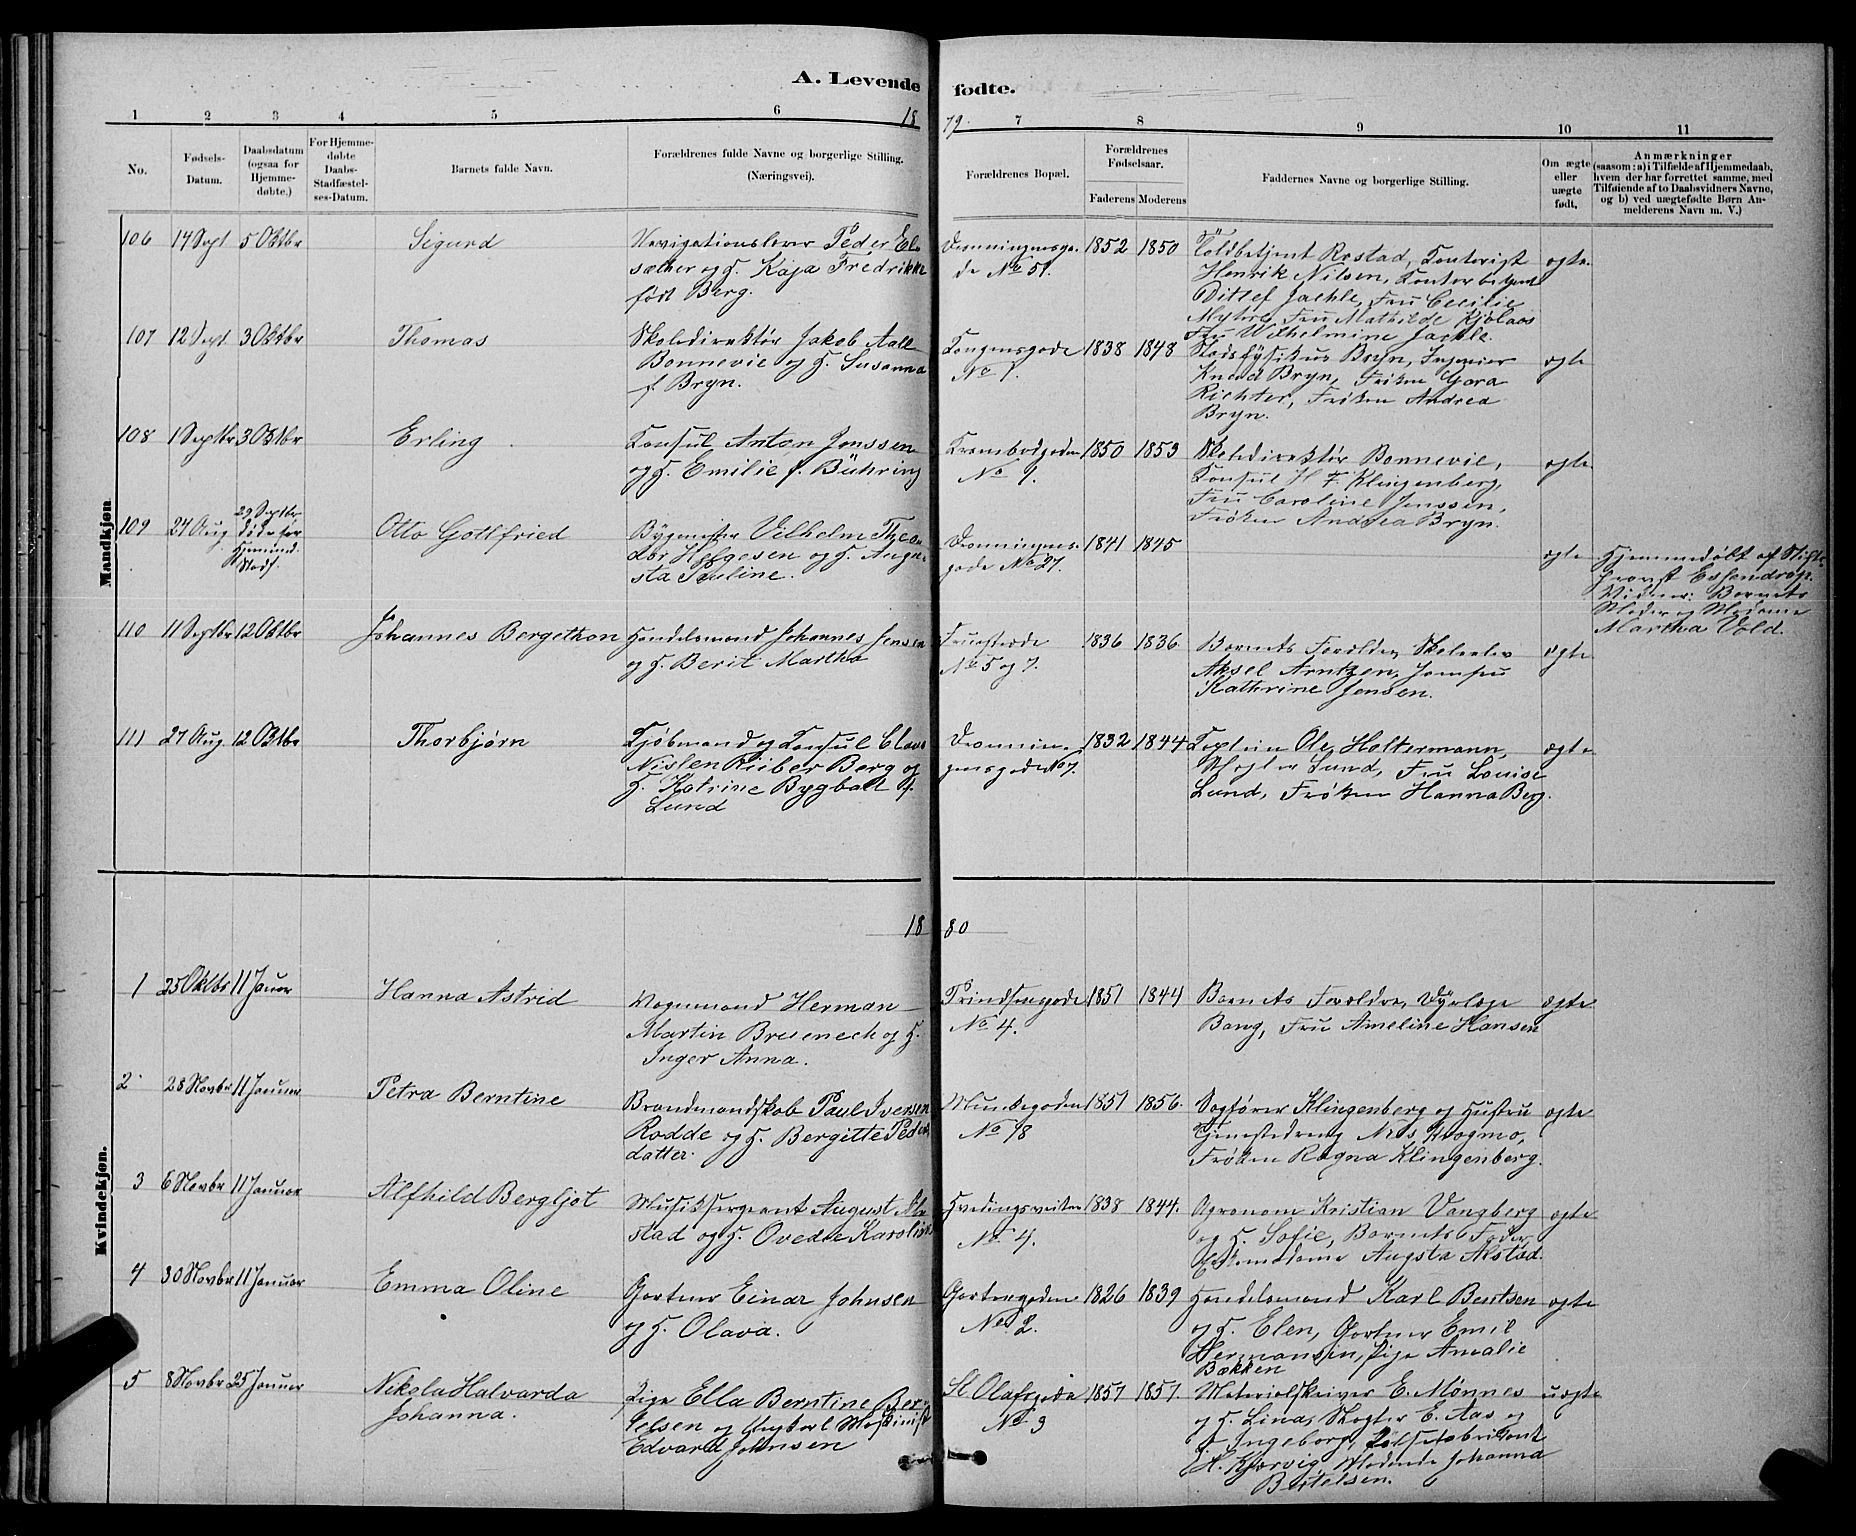 A. Levende fødte.
1 2 3 4 5 6 7 8 9 10 11
18 79.
No.
Fødsels-Datum.
Daabsdatum (ogsaa for Hjemmedøbte.)
For Hjemmedøbte Daabs-Stadfæstelses-Datum.
Barnets fulde Navn.
Forældrenes fulde Navne og borgerlige Stilling. (Næringsvei).
Forældrenes Bopæl.
Forældrenes Fødselsaar.
Faderens Moderens
Faddernes Navne og borgerlige Stilling.
Om ægte eller uægte født.
Anmærkninger
(saasom: a) i Tilfælde af Hjemmedaab,
hvem der har forrettet samme, med
Tilføiende af to Daabsvidners Navne,
og b) ved uægtefødte Børn Anmelderens Navn m. V.)
Mandkjøn
106 14 Sept 5 Oktbr Sigurd
Navigationslærer Peder El-
sæther og H. Kaja Fredrikke
født Berg.
Dronningensga-
de No 51.
1852 1850
Toldbetjent Rostad, Kontorist
Henrik Nilsen, Kontorbetjent
Ditlef Jaehle, Fru Cecilie
Myhre, Fru Mathilde Kjølaas
Fru Wilhelmine Jaehle.
ægte
107 12 Sept 3 Oktbr Thomas
Skoledirektør Jakob Aall
Bonnevie og H. Susanna
f Bryn.
Kongensgade
No 1.
1838 1848
Stadsfysikus Bryn, Ingeniør
Knud Bryn, Frøken Thora
Richter, Frøken Andrea
Bryn.
ægte
108 1 Septbr 3 Oktbr Erling
Konsul Anton Jenssen
og H. Emilie f. Bühring
Krambodgaden
No 9.
1850 1853
Skoledirektør Bonnevie,
Konsul H F Klingenberg,
Fru Caroline Jenssen,
Frøken Andrea Bryn.
ægte
109 24 Aug 29 Septbr
døde før
Hjemmed.
Stadf.
Otto Gottfried
Bygmester Vilhelm Theo-
dor Helgesen og H. Augu-
sta Pauline.
Dronningens-
gade No 27.
1841 1845
ægte
Hjemmedøbt af Stifts-
provst Essendrop.
Vidner: Barnets
Moder og Madame
Martha Vold.
110 11 Septbr 12 Oktbr Johannes Bergethon
Handelsmand Johannes Jensen
og H. Berit Martha
Fruestræde
No 5 og 7.
1836 1836
Barnets Forældre, Skoleelev
Aksel Arntzen, Jomfru
Kathrine Jensen.
ægte
111 27 Aug 12 Oktbr Thorbjørn
Kjøbmand og Konsul Claus
Nislen Riiber Berg og
H. Katrine Bygball f.
Lund
Dronnin-
gensgade No 7.
1832 1844
Kaptein Ole Holtermann,
Mægler Lund, Fru Louise
Lund, Frøken Hanna Berg.
ægte
18 80
Kvindekjøn.
1 25 Oktbr 11 Januar Hanna Astrid
Vognmand Herman
Martin Brusenech og H.
Inger Anna.
Prindsensgade
No 4.
1851 1844
Barnets Forældre, Dyrlæge
Bang, Fru Ameline Hansen
ægte
2 28 Novbr 11 Januar Petra Berntine
Brandmandskab Paul Iversen
Rodde og H. Bergitte Peders-
datter.
Munkegaden
No 18
1851 1856.
Sagfører Klingenberg og Hustru
Tjenestedreng Nils Krogmo,
Frøken Ragna Klingenberg.
ægte
3 6 Novbr 11 Januar Alfhild Bergljot
Musiksergeant August Al-
stad og H. Ovedie Karoline
Hvedingsveiten
No 4.
1838 1844.
Agronom Kristian Vangberg
og H. Sofie, Barnets Fader,
Enkemadame Augsta Alstad.
ægte
4 30 Novbr 11 Januar Emma Oline
Gartner Einar Johnsen
og H. Olava.
Gartnegaden
No 2.
1826 1839
Handelsmand Karl Bentsen
og H. Elen, Gartner Emil
Hermansen, Pige Amalie
Bækken
ægte
5 8 Novbr 25 Januar Nikola Halvarda
Johanna.
Pige Ella Berntine Ber-
telsen og Ungkarl Maskinist
Edvard Johnsen
St Olafsgada
No 3
1857 1857.
Materialskriver E. Mønnes
og H. Lina, Skogter E. Aas og
H. Ingeborg, Pølsefabrikant
H. Kjørvig, Madame Johanna
Bertelsen.
uægte